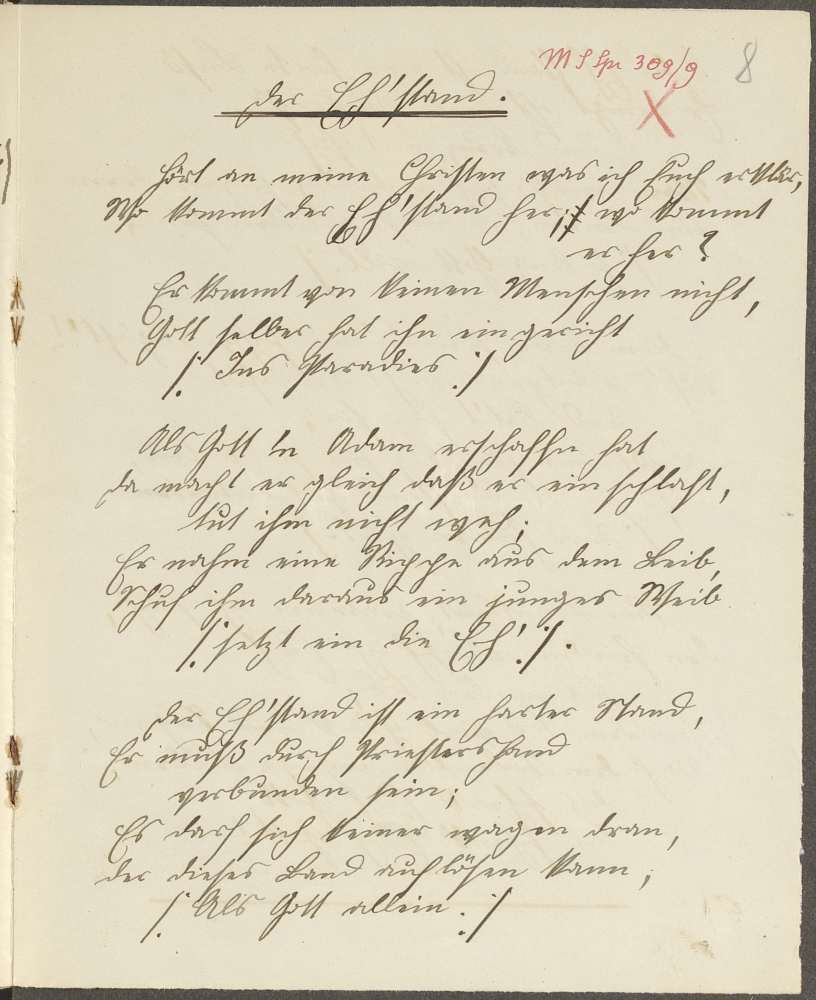 MS Spr 309/9 8
X
Der Eh'stand.
Hört an meine Christen was ich Euch erklär,
Wo kommt der Eh'stand her; wo kommt
er her?
Er kommt von keinen Menschen nicht,
Gott selber hat ihn eingericht
/: Ins Paradies :/
Als Gott in Adam erschaffn hat
da macht er gleich daß er einschlaft,
tut ihm nicht weh;
Er nahm eine Rippe aus dem Leib,
Schuf ihm daraus ein junges Weib
/: setzt ein die Eh' :/.
Der Eh'stand ist ein harter Stand,
Er muß durch Priestershand
verbunden sein;
Es darf sich keiner wagen dran,
der dieses Band auflösen kann,
/: Als Gott allein :/